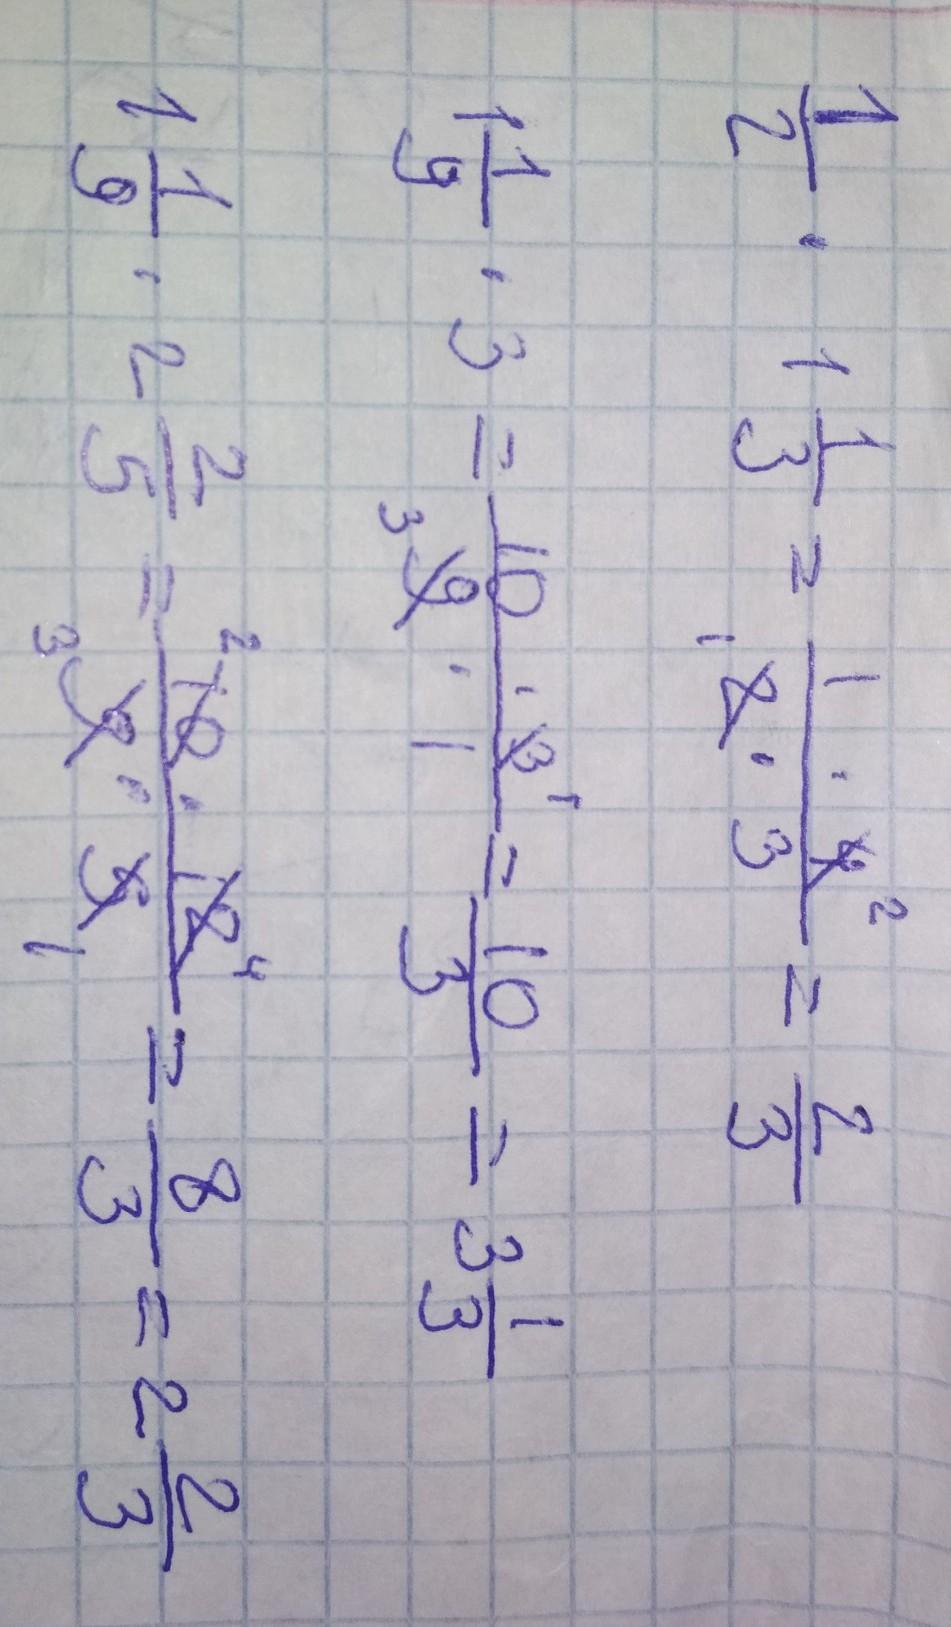 1/2 · 1 1/3 = (1 · 4̸ ²)/(₁ 2̸ · 3) = 2/3
1 1/9 · 3 = (10 · 3̸ ¹)/(₃ 9̸ · 1) = 10/3 = 3 1/3
1 1/9 · 2 2/5 = (² 1̸0̸ · 1̸2̸ ⁴)/(₃ 9̸ · 5̸ ₁) = 8/3 = 2 2/3